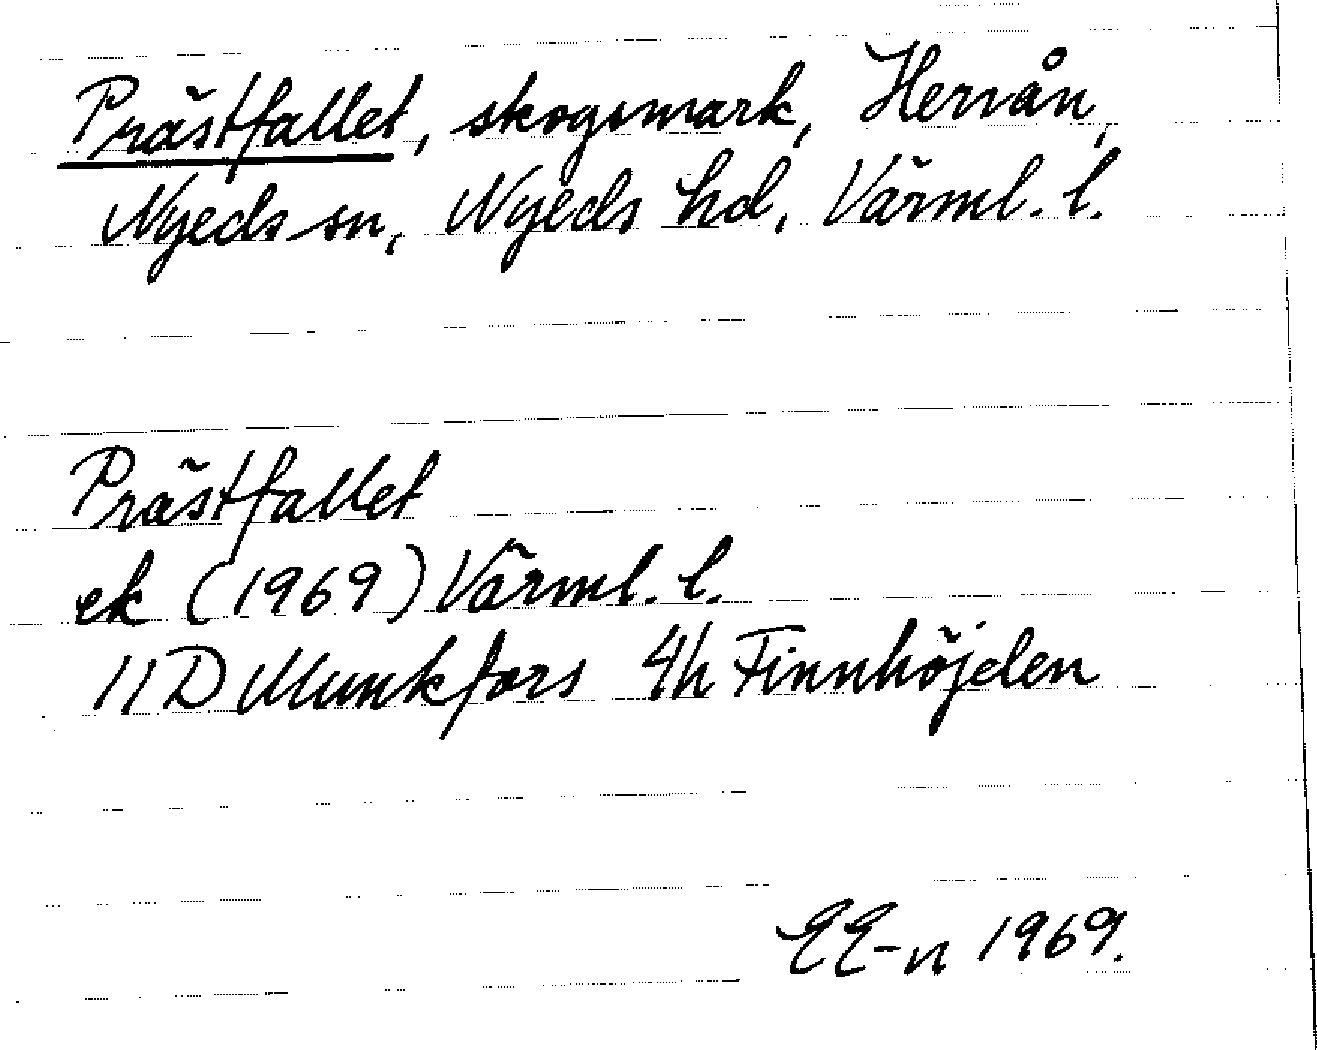 Prästfallet, skogsmark, Hervån,
Nyeds sn, Nyeds hd, Värml. l.
Prästfallet
ek (1969) Värml. l.
11D Munkfors 4h Finnhöjden
EE-n 1969.